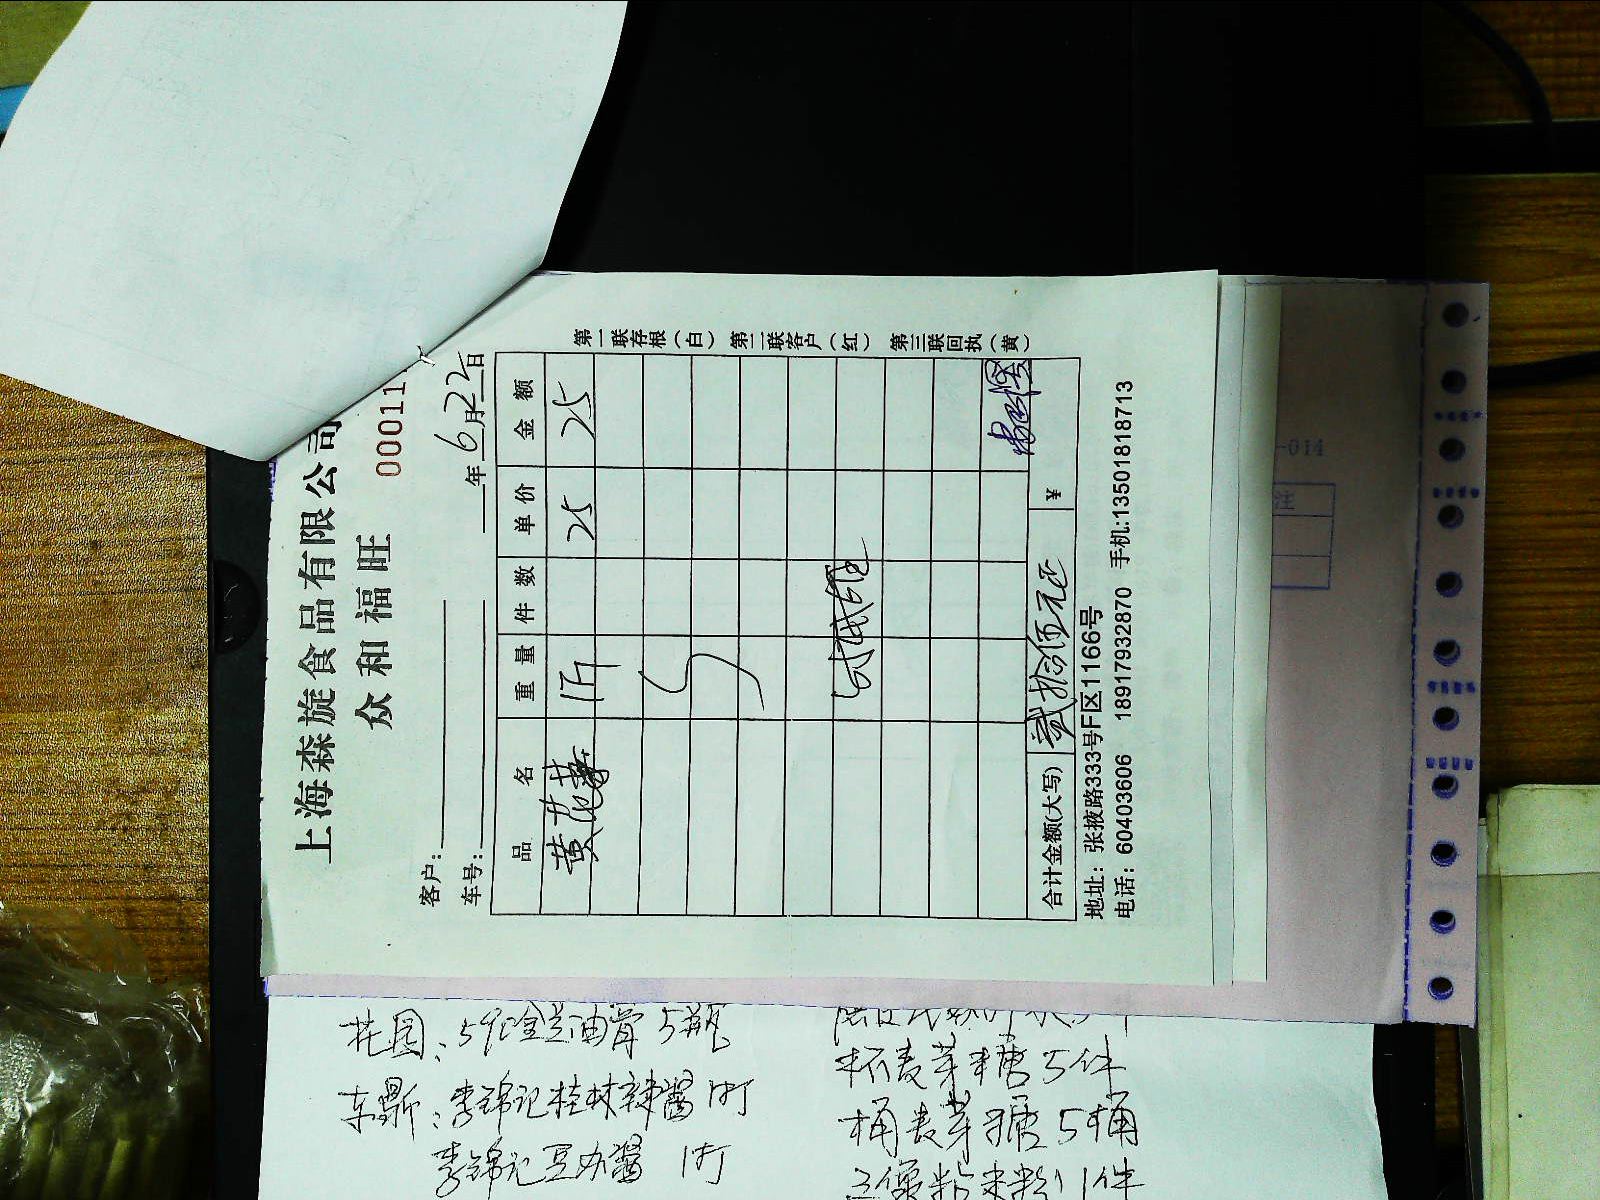 上海森旋食品有限公司
众和福旺
00011
客户：
年6月22日
车号：
品名 重量 件数 单价 金额
黄花 1斤 25 25
合计金额(大写) 贰拾伍元正 ¥
地址：张掖路333号F区1166号
电话：60403606 18917932870 手机:13501818713
第一联存根（白） 第二联客户（红） 第三联回执（黄）
-014
注
花园：5 油膏 5瓶
东鼎：李锦记桂林辣酱 1打
李锦记豆办酱 1打
杯麦芽糖5件
桶麦芽糖5桶
三象粘米粉 1件